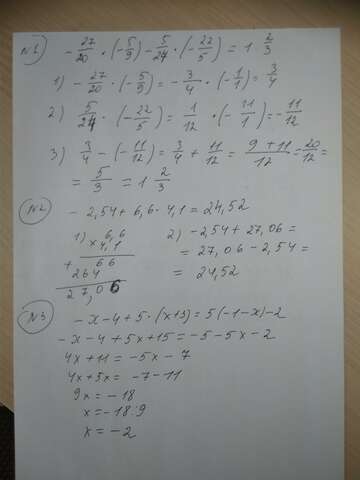 №1) - 27/20 · (- 5/9) - 5/24 · (- 22/5) = 1 2/3
1) - 27/20 · (- 5/9) = - 3/4 · (- 1/1) = 3/4
2) 5/24 · (- 22/5) = 1/12 · (- 11/1) = - 11/12
3) 3/4 - (- 11/12) = 3/4 + 11/12 = (9 + 11)/12 = 20/12 =
= 5/3 = 1 2/3
№2 - 2,54 + 6,6 · 4,1 = 24,52
1) 6,6 2) - 2,54 + 27,06 =
× 4,1 = 27,06 - 2,54 =
+ 66 = 24,52
264
27,06
№3 - x - 4 + 5 · (x + 3) = 5(-1 - x) - 2
- x - 4 + 5x + 15 = -5 - 5x - 2
4x + 11 = -5x - 7
4x + 5x = -7 - 11
9x = -18
x = -18 : 9
x = -2